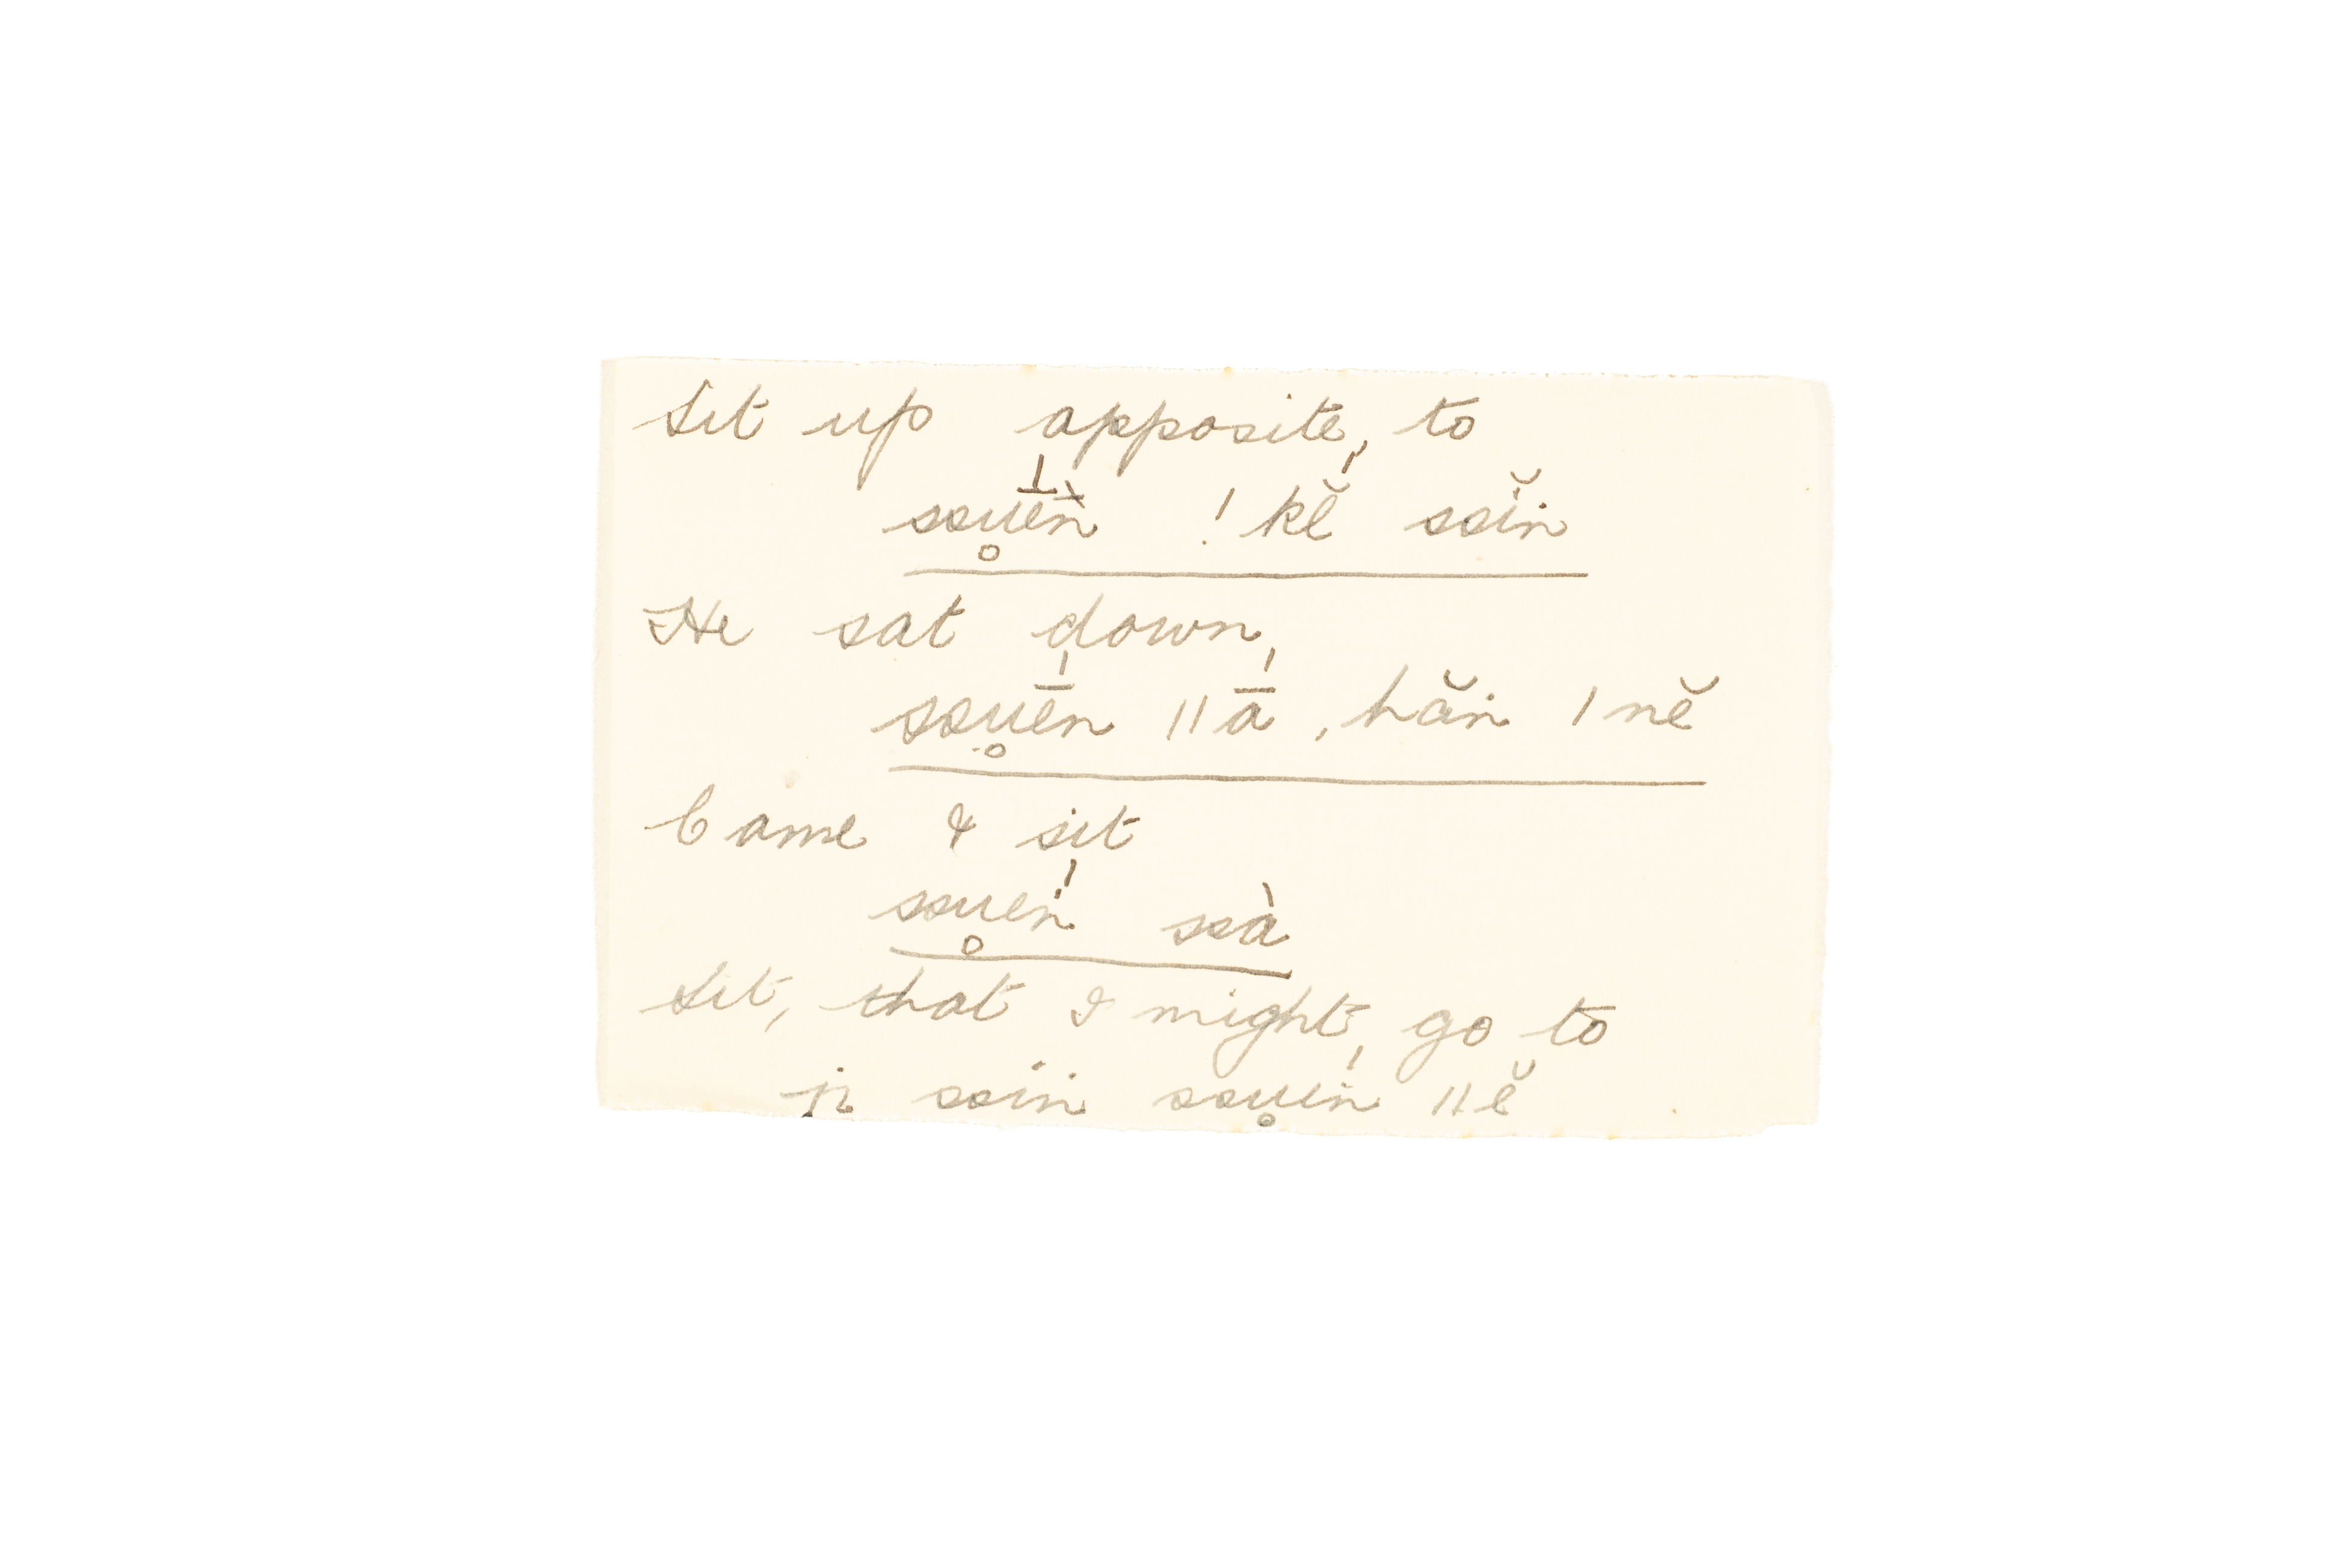 Sit up opposite, to
ssu̥ḗǹ ! kĕ́ ssĭn
He sat down,
ssu̥ḗn ǁā́, hăn ǀnĕ
Came & sit
ssu̥eń ssà
Sit, that I might, go to
ssin ssu̥eń ǁĕ